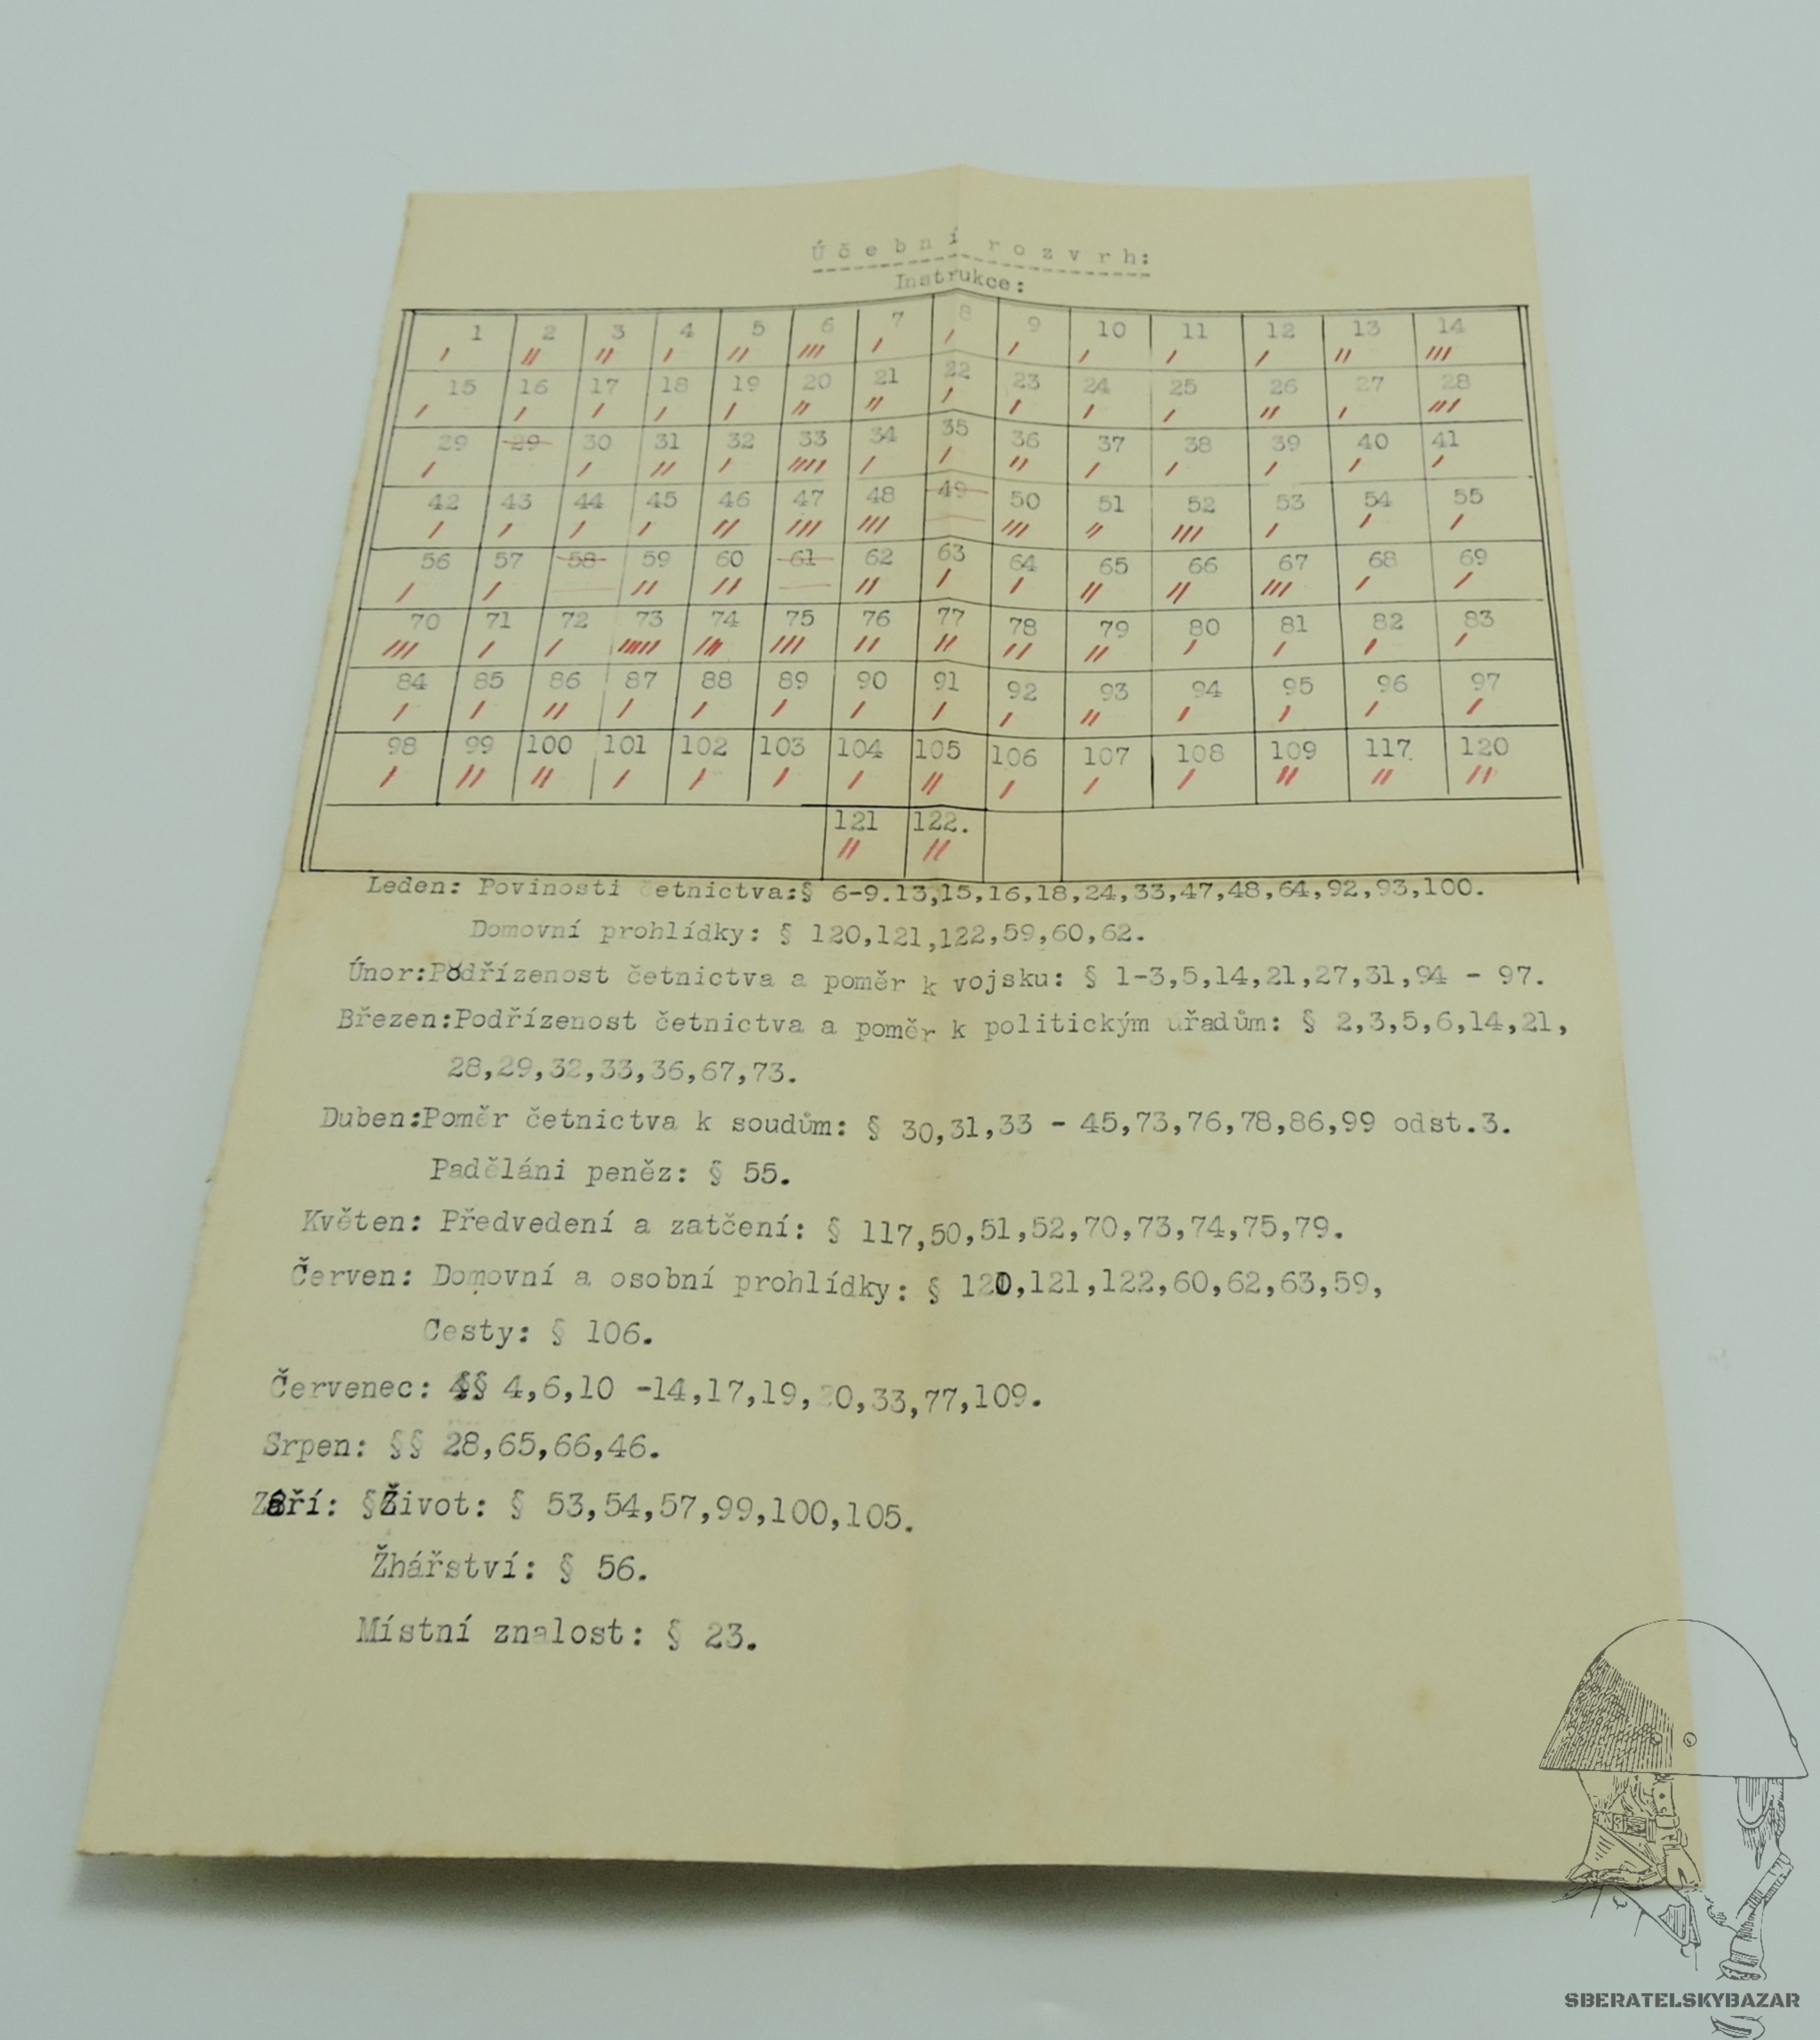 Účební rozvrh:
Instrukce:
1 2 3 4 5 6 7 8 9 10 11 12 13 14
15 16 17 18 19 20 21 22 23 24 25 26 27 28
29 29 30 31 32 33 34 35 36 37 38 39 40 41
42 43 44 45 46 47 48 49 50 51 52 53 54 55
56 57 58 59 60 61 62 63 64 65 66 67 68 69
70 71 72 73 74 75 76 77 78 79 80 81 82 83
84 85 86 87 88 89 90 91 92 93 94 95 96 97
98 99 100 101 102 103 104 105 106 107 108 109 117. 120
121 122.
Leden: Povinosti četnictva:§ 6-9.13,15,16,18,24,33,47,48,64,92,93,100.
Domovní prohlídky: § 120,121,122,59,60,62.
Únor:Podřízenost četnictva a poměr k vojsku: § 1-3,5,14,21,27,31,94 - 97.
Březen:Podřízenost četnictva a poměr k politickým uřadům: § 2,3,5,6,14,21,
28,29,32,33,36,67,73.
Duben:Poměr četnictva k soudům: § 30,31,33 - 45,73,76,78,86,99 odst.3.
Paděláni peněz: § 55.
Květen: Předvedení a zatčení: § 117,50,51,52,70,73,74,75,79.
Červen: Domovní a osobní prohlídky: § 120,121,122,60,62,63,59,
Cesty: § 106.
Červenec: §§ 4,6,10 -14,17,19,20,33,77,109.
Srpen: §§ 28,65,66,46.
Září: §Život: § 53,54,57,99,100,105.
Žhářství: § 56.
Místní znalost: § 23.
SBERATELSKYBAZAR